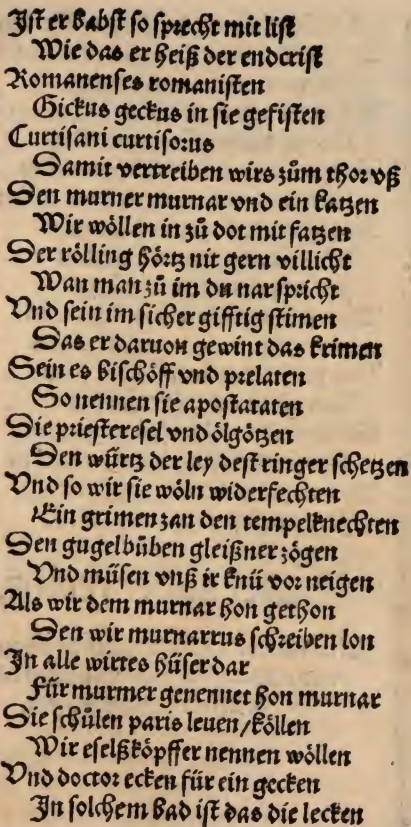 Jst er babst so sprecht mit list
Wie das er heiß der endcrist
Romanenses romanisten
Gickus geckus in sie gefisten
Curtisani curtisorus
Damit vertreiben wirs zům thor vß
Den murner murnar vnd ein katzen
Wir wöllen in zů dot mit fatzen
Der rölling hörtz nit gern villicht
Wan man zů im du nar spricht
Vnd sein im sicher gifftig stimen
Das er daruon gewint das krimen
Sein es bischöff vnd prelaten
So nennen sie apostataten
Die priesteresel vnd ölgötzen
Den würtz der ley dest ringer schetzen
Vnd so wir sie wöln widerfechten
Ein grimen zan den tempelknechten
Den gugelbůben gleißner zögen
Vnd müsen vnß ir knü vor neigen
Als wir dem murnar hon gethon
Den wir murnarrus schreiben lon
Jn alle wirtes hüser dar
Für murmer genennet hon murnar
Die schůlen paris leuen/köllen
Wir eselßköpffer nennen wöllen
Vnd doctor ecken für ein gecken
Jn solchem bad ist das die lecken